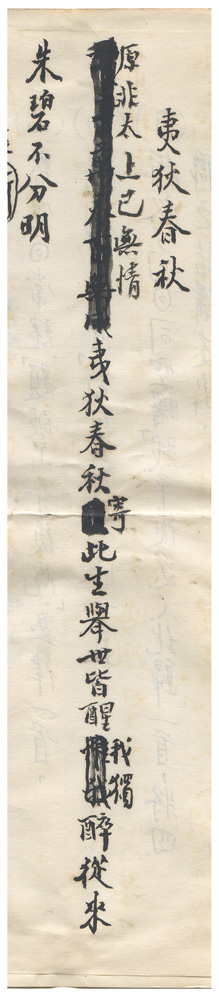 夷狄春秋
原非太上已無情
夷狄春秋寄此生舉世皆醒我獨醉從來
朱碧不分明